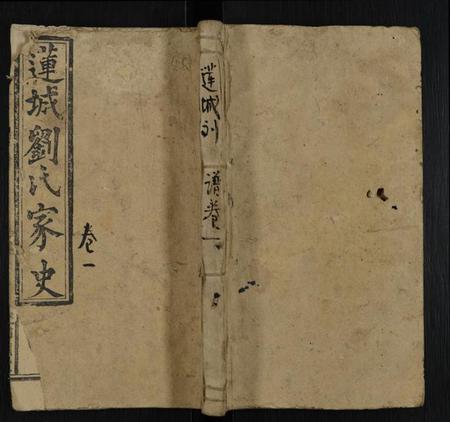 蓮城劉氏家史
卷一
蓮城刘
谱卷一